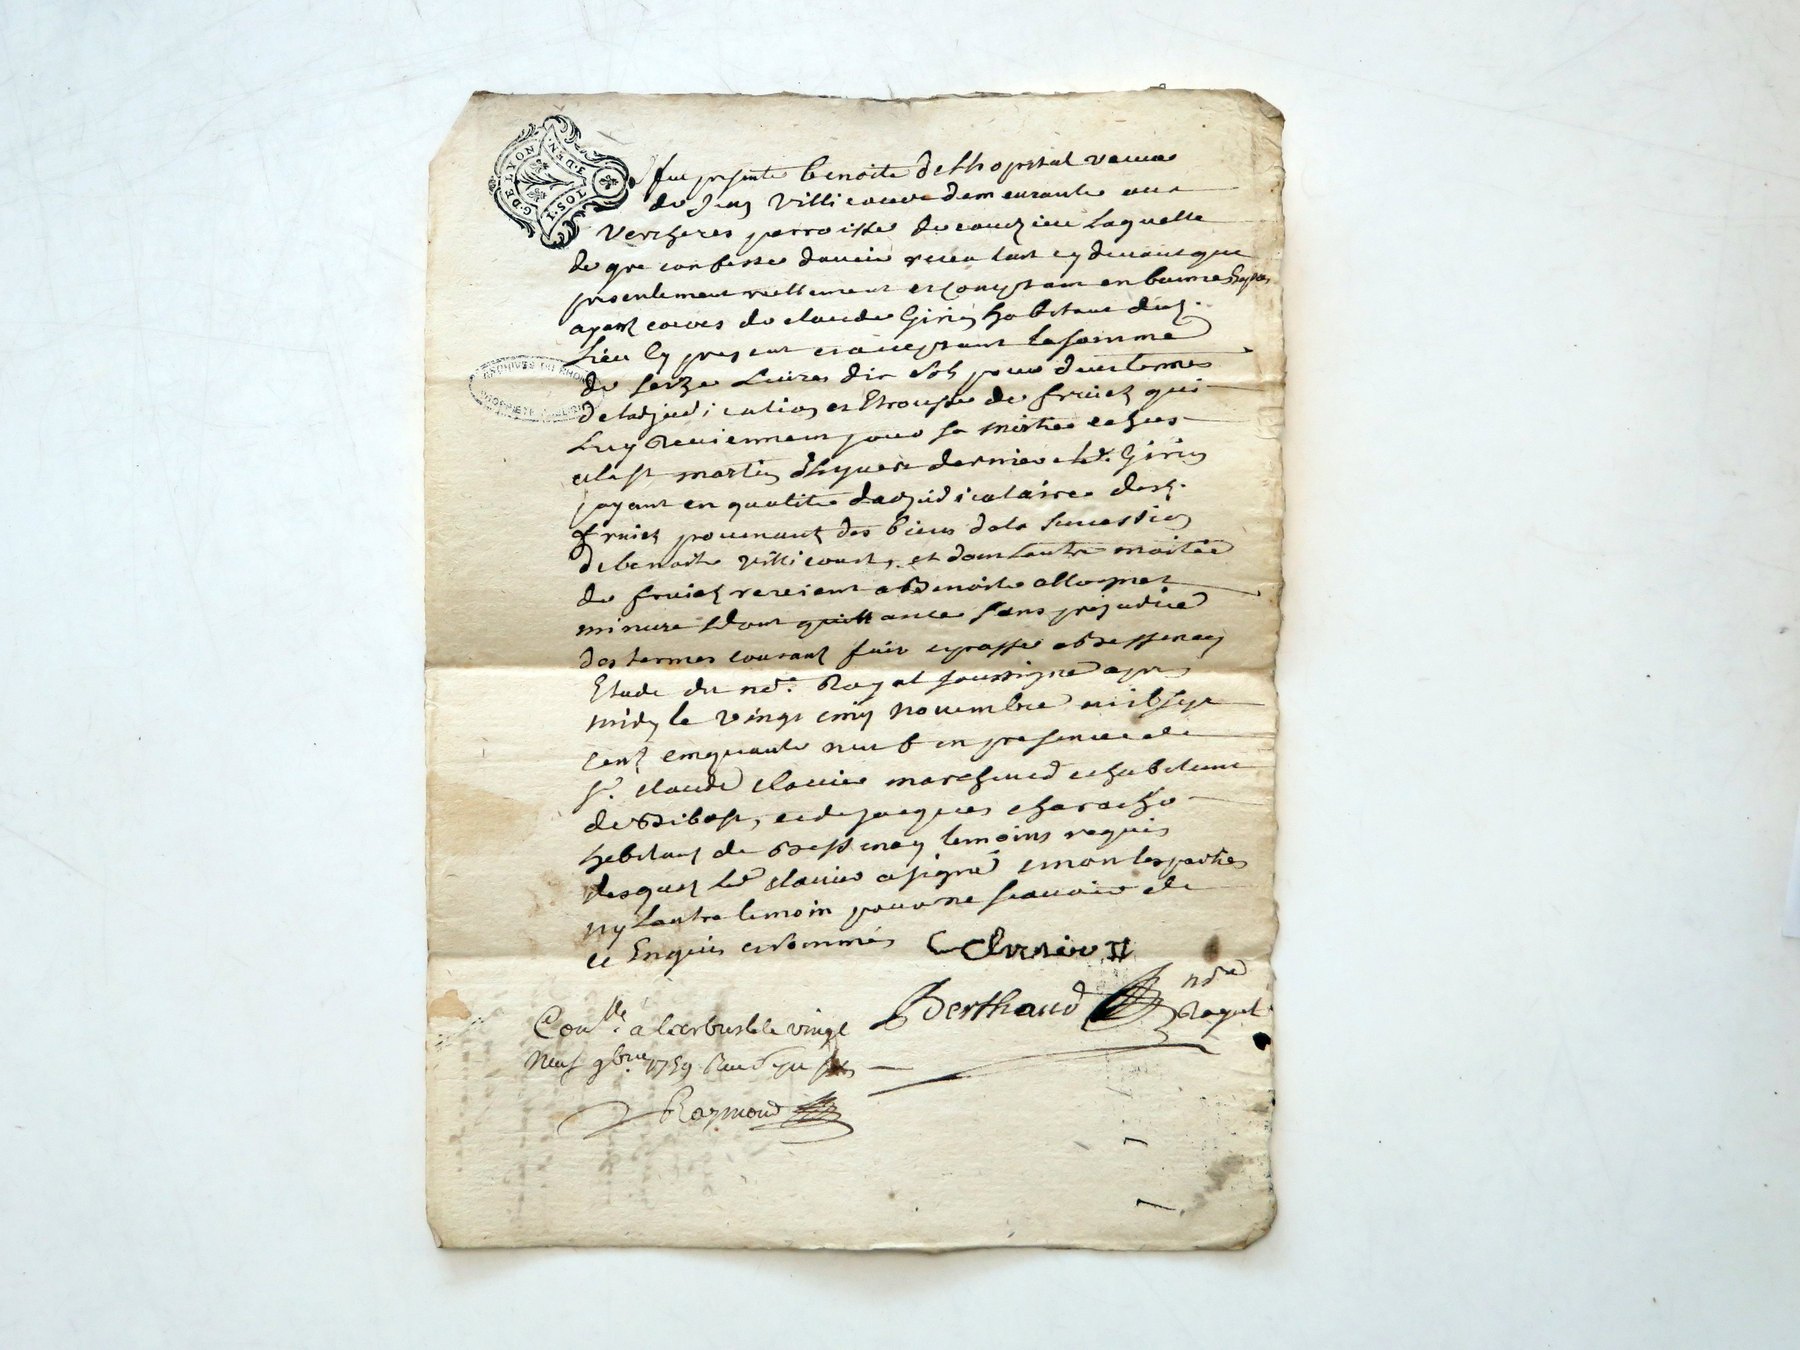 G. DE LYON
S. DEN.
I. SOL
fut presente benoite delhopital veuve
de Jean Villicourt demeurante aux
Vercheres parroisse de couzieu laquelle
de gre confesse davoir receu tant cy devant que
presentement reellement et comptant en bonnes Especes
ayant cours de claude Girin habitant dud.
Lieu Cy present et acceptant la somme
de seize Livres dix sols pour deux termes
deladjudication et Etrousse de fruicts qui
Luy Reviennent pour sa moitie echus
a la st martin dhyvert dernier led. Girin
payant en qualite dadjudicataire desd.
fruicts provenants des biens dela succession
de benoite Villicourt, et dont lautre moitie
de fruicts revient a Benoite allognet
mineure dont quittance sans prejudice
des termes courants fait et passe a Bessenay
Etude du nore. Royal soussigne apres
midy le vingt cinq novembre mil sept
cents cinquante neuf en presence de
sr. claude clavier marchand et habitant
de Bibost, et de jacques
habitant de Bessenay temoins requis
desquels led clavier a signé et non les parties
ny lautre temoin pour ne scavoir de
ce Enquis et sommés Clavier
Berthaud nore Royal
Conlle. a Larbresle le vingt
Neuf 9bre 1759 Recu
Raymond
ARCHIVES DU RHONE
PROPRIETE PUBLIQUE